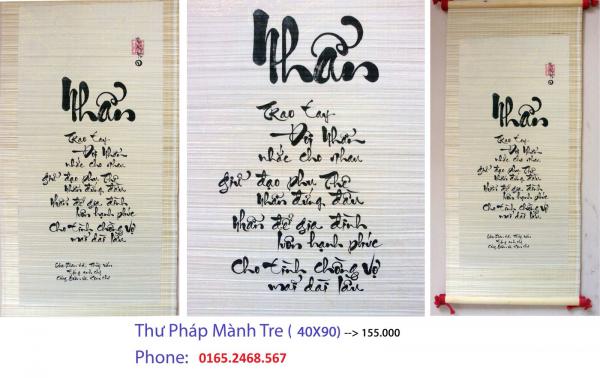 Nhẫn
Trao tay
Đôi Nhẫn
nhắc cho nhau
giữ đạo phu Thê
Nhẫn đứng đầu
Nhẫn để gia đình
luôn hạnh phúc
Cho tình chồng vợ
mãi dài lâu
Tặng anh chị
Nhẫn
Trao tay
Đôi Nhẫn
nhắc cho nhau
giữ đạo phu Thê
Nhẫn đứng đầu
Nhẫn để gia đình
luôn hạnh phúc
Cho tình chồng vợ
mãi dài lâu
Nhẫn
Trao tay
Đôi Nhẫn
nhắc cho nhau
giữ đạo phu Thê
Nhẫn đứng đầu
Nhẫn để gia đình
luôn hạnh phúc
Cho tình chồng vợ
mãi dài lâu
Thư Pháp Mành Tre ( 40X90) --> 155.000
Phone: 0165.2468.567